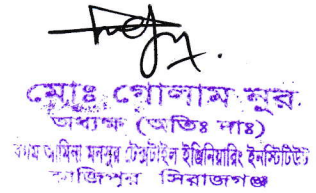 মোঃ গোলাম নুর
অধ্যক্ষ (অতিঃ দাঃ)
আমিনা মনসুর টেক্সটাইল ইঞ্জিনিয়ারিং ইনস্টিটিউট
কাজিপুর সিরাজগঞ্জ